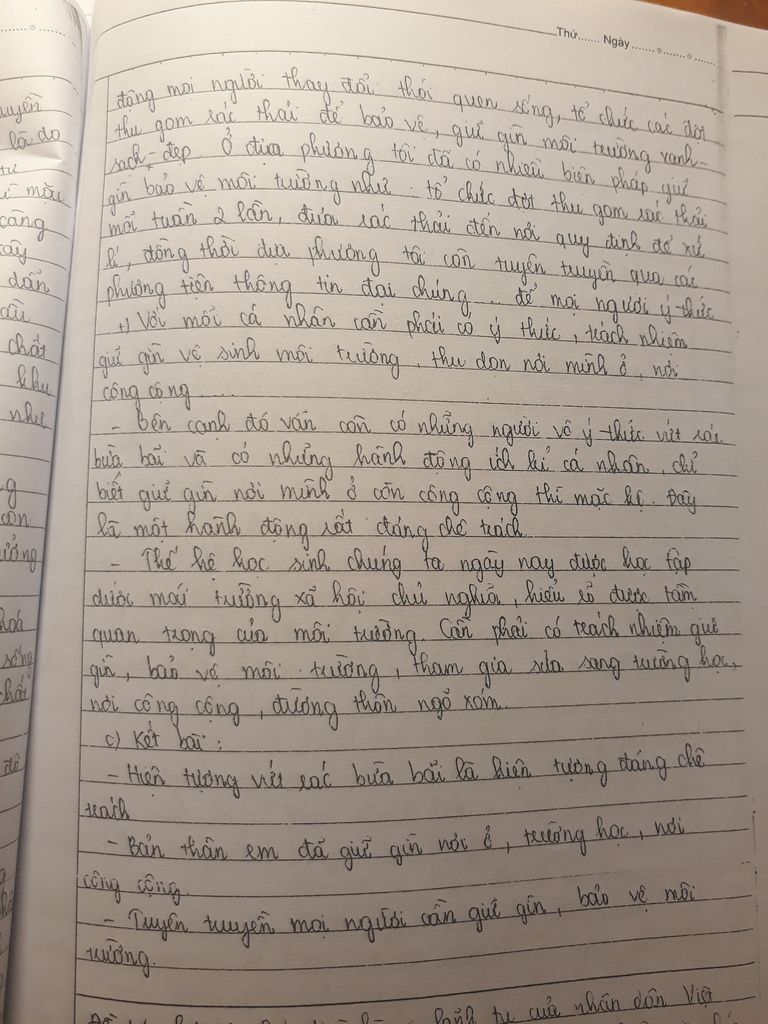 Thứ...... Ngày ......../......./.......
động mọi người thay đổi thói quen sống, tổ chức các đợt
thu gom rác thải để bảo vệ, giữ gìn môi trường xanh -
sạch - đẹp. Ở địa phương tôi đã có nhiều biện pháp giữ
gìn bảo vệ môi trường như: tổ chức đợt thu gom rác thải
mỗi tuần 2 lần, đưa rác thải đến nơi quy định để xử
lí, đồng thời địa phương tôi còn tuyên truyền qua các
phương tiện thông tin đại chúng... để mọi người ý thức
+) Với mỗi cá nhân cần phải có ý thức, trách nhiệm
giữ gìn vệ sinh môi trường, thu dọn nơi mình ở, nơi
công cộng.....
- Bên cạnh đó vẫn còn có những người vô ý thức vứt rác
bừa bãi và có những hành động ích kỉ cá nhân, chỉ
biết giữ gìn nơi mình ở còn công cộng thì mặc kệ. Đây
là một hành động rất đáng chê trách
- Thế hệ học sinh chúng ta ngày nay được học tập
dưới mái trường xã hội chủ nghĩa, hiểu rõ được tầm
quan trọng của môi trường. Cần phải có trách nhiệm giữ
gìn, bảo vệ môi trường, tham gia sửa sang trường học,
nơi công cộng, đường thôn ngõ xóm.
c) Kết bài:
- Hiện tượng vứt rác bừa bãi là hiện tượng đáng chê
trách
- Bản thân em đã giữ gìn nơi ở, trường học, nơi
công cộng.
- Tuyên truyền mọi người cần giữ gìn, bảo vệ môi
trường.
của nhân dân Việt